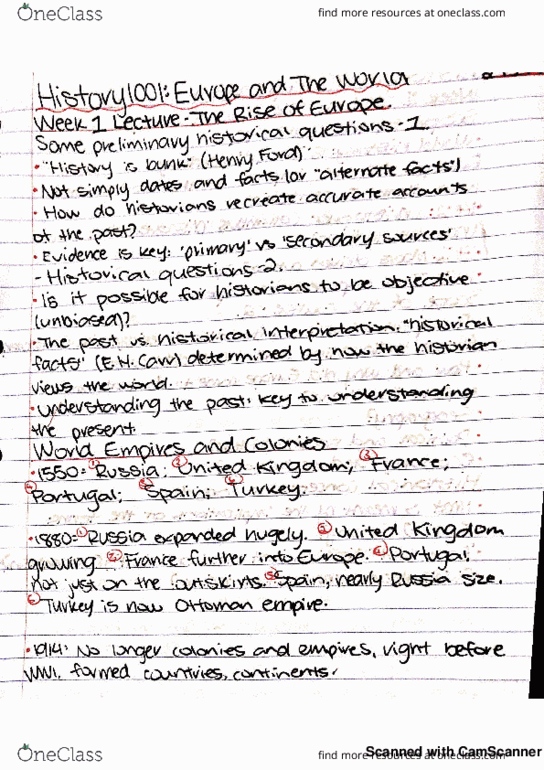 OneClass
find more resources at oneclass.com
History1001: Europe and The World
Week 1 Lecture - The Rise of Europe.
Some preliminary historical questions - 1.
• "History is bunk" (Henry Ford).
• Not simply dates and facts (or "alternate facts")
• How do historians recreate accurate accounts
of the past?
• Evidence is key: 'primary' vs 'secondary sources'
- Historical questions - 2.
• Is it possible for historians to be objective
(unbiased)?
• The past vs. historical interpretation. "historical
facts" (E.H. Carr) determined by how the historian
views the world.
• understanding the past: key to understanding
the present.
World Empires and Colonies
• 1550: ① Russia; ② United Kingdom; ③ France;
④ Portugal; ⑤ Spain; ⑥ Turkey.
• 1880: ① Russia expanded hugely. ② United Kingdom
growing. ③ France further into Europe. ④ Portugal,
not just on the outskirts. ⑤ Spain, nearly Russia size.
⑥ Turkey is now Ottoman empire.
• 1914: No longer colonies and empires, right before
WW1. formed countries, continents.
OneClass
find more resources at oneclass.com
Scanned with CamScanner